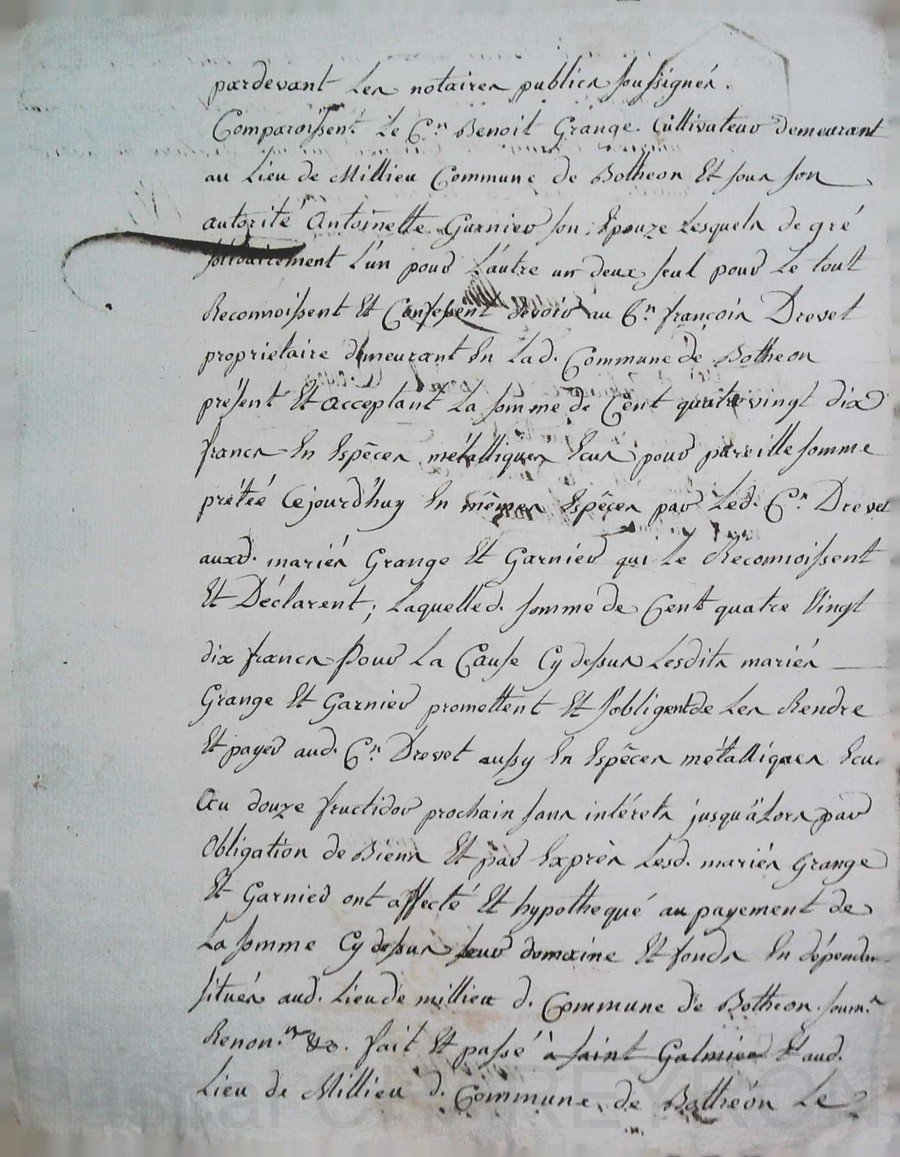 pardevant Les notaires publics soussignés.
Comparoissent Le C.en Benoit Grange Cultivateur demeurant
au Lieu de Millieu Commune de Botheon Et sous son
autorité Antoinette Garnier son Epouze Lesquels de gré
solidairement L'un pour L'autre un deux seul pour Le tout
Reconnoissent Et Confessent devoir au C.en françois Drevet
proprietaire demeurant En Lad. Commune de Botheon
présent Et acceptant La somme de Cent quatre vingt dix
francs En Espèces métalliques Ecus pour pareille somme
prétée Cejourd'huy En mêmes Espèces par Led. C.en Drevet
auxd. mariés Grange Et Garnier qui Le Reconnoissent
Et Déclarent ; Laquelle d. somme de Cent quatre Vingt
dix francs Pour La Cause Cy dessus Lesdits mariés
Grange Et Garnier promettent Et s'obligent de Les Rendre
Et payer aud. C.en Drevet aussy En Espèces métalliques Ecu
Au douze fructidor prochain sans intérets jusqu'à Lors par
Obligation de Biens Et par Exprès Lesd. mariés Grange
Et Garnier ont affecté Et hypothequé au payement de
La somme Cy dessus Leur domaine Et fonds En dépendn
situés aud. Lieu de millieu d. Commune de Botheon soum.n
Renon.on &a. fait Et passé à saint Galmier Et aud.
Lieu de Millieu d. Commune de Botheon Le